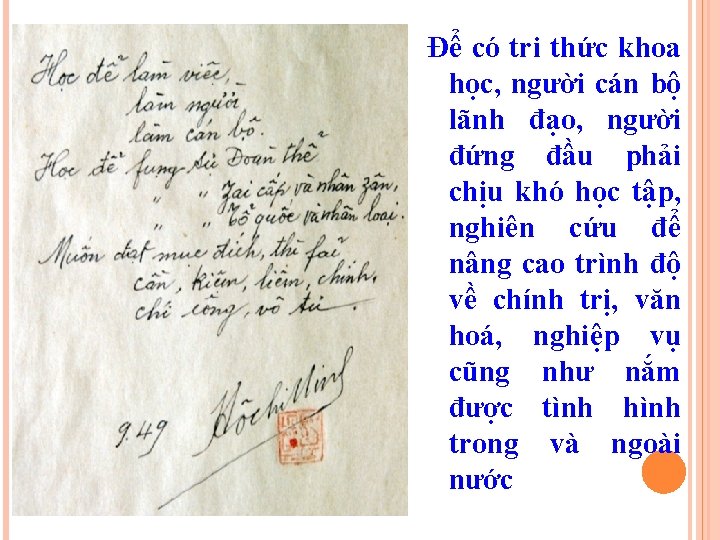 Học để làm việc,
làm người,
làm cán bộ.
Học để fụng sự Đoàn thể
" " zai cấp và nhân zân,
" " Tổ quốc và nhân loại.
Muốn đạt mục đích, thì fải
cần, kiệm, liêm, chính,
chí công, vô tư.
9.49
Hồ Chí Minh
Để có tri thức khoa
học, người cán bộ
lãnh đạo, người
đứng đầu phải
chịu khó học tập,
nghiên cứu để
nâng cao trình độ
về chính trị, văn
hoá, nghiệp vụ
cũng như nắm
được tình hình
trong và ngoài
nước